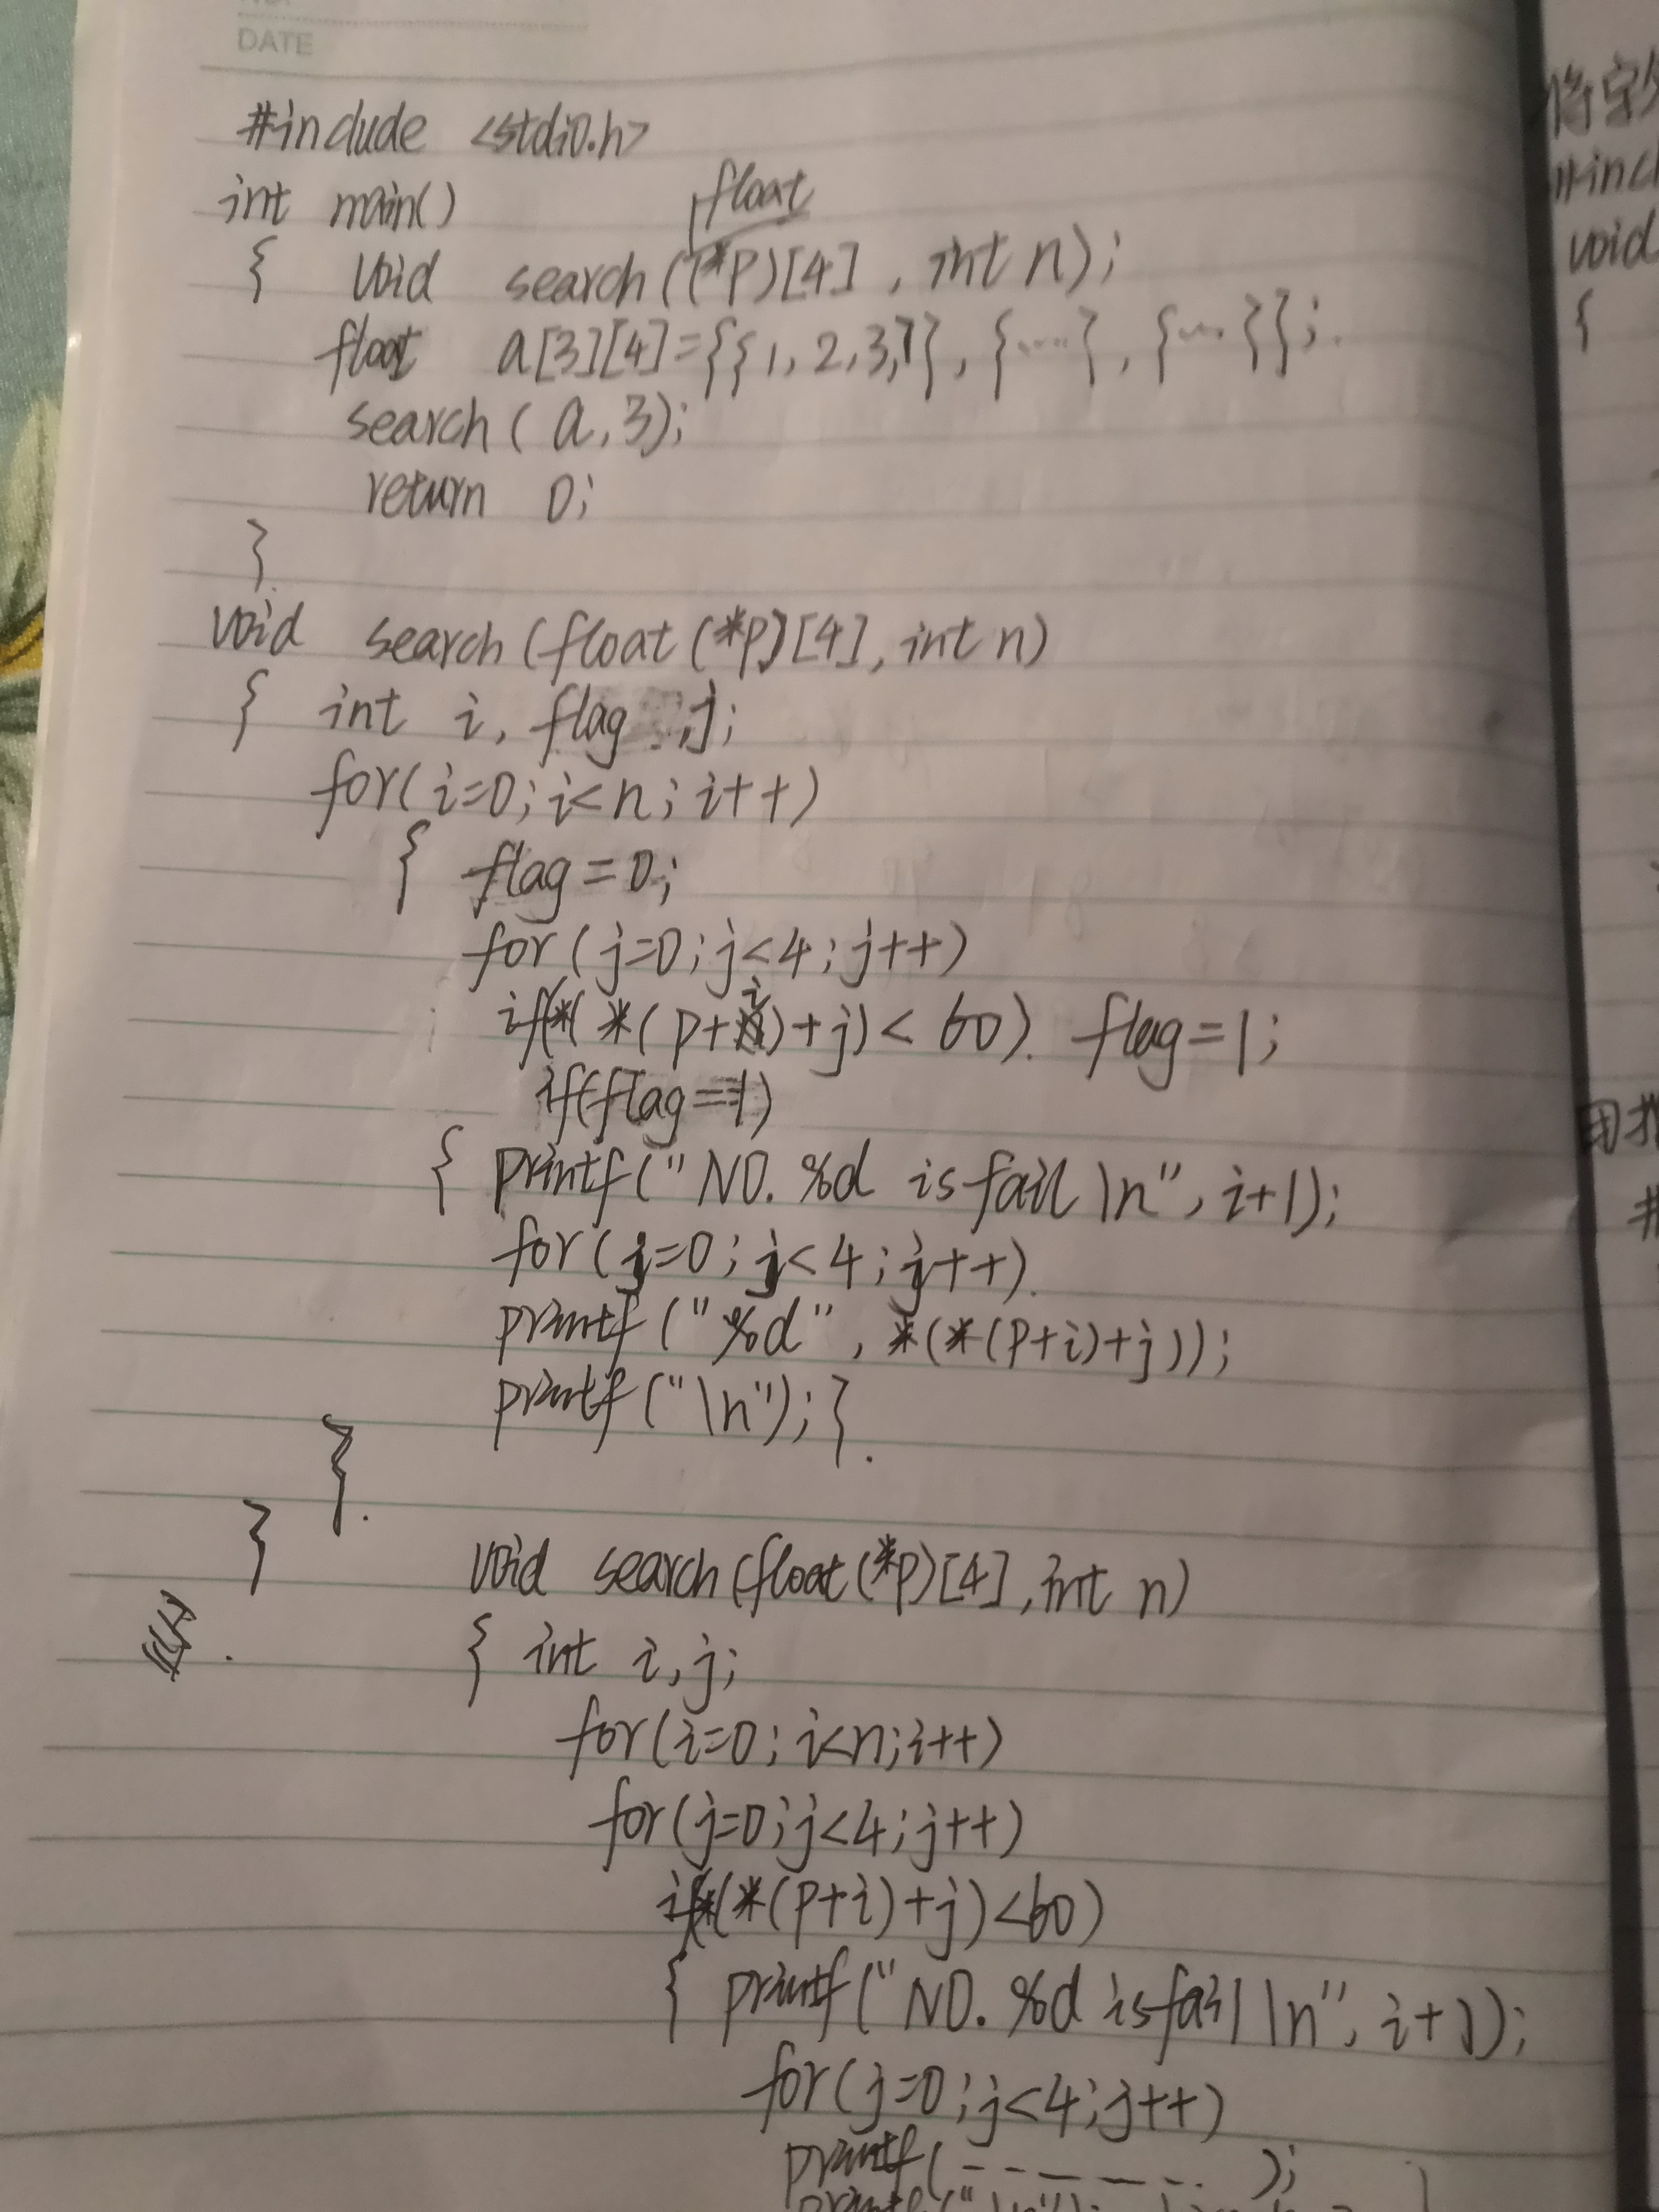 DATE
#include <stdio.h>
int main()
float
{ void search((*p)[4], int n);
float a[3][4]={{1,2,3,7},{....},{...}};
search(a,3);
return 0;
}
void search(float(*p)[4],int n)
{ int i, flag ,j;
for(i=0;i<n;i++)
{ flag=0;
for(j=0;j<4;j++)
if(*(*(p+i)+j)<60) flag=1;
if(flag==1)
{ printf("NO. %d is fail \n", i+1);
for(j=0;j<4;j++)
printf("%d", *(*(p+i)+j));
printf("\n");}
}
}
void search(float(*p)[4],int n)
{ int i,j;
for(i=0;i<n;i++)
for(j=0;j<4;j++)
if(*(*(p+i)+j)<60)
{ printf("NO. %d is fail \n", i+1);
for(j=0;j<4;j++)
printf(------);
printf("\n");
将
#incl
void
{
#